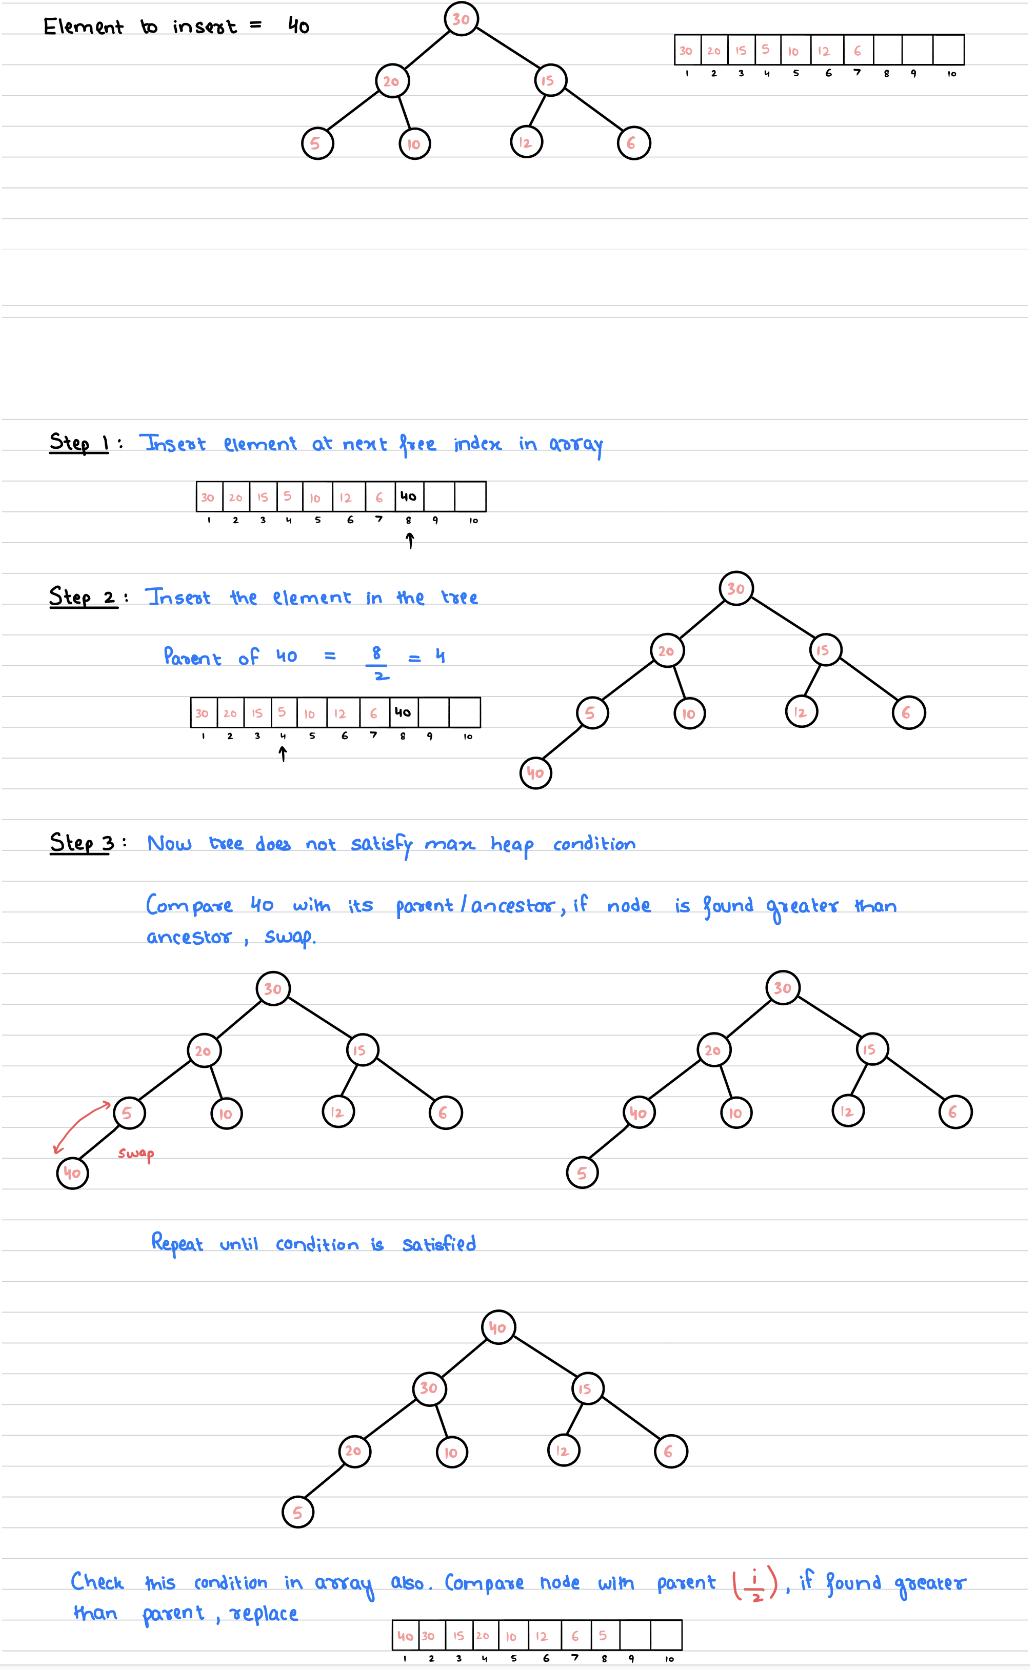 Element to insert = 40
30
20 15
5 10 12 6
30 20 15 5 10 12 6
1 2 3 4 5 6 7 8 9 10
Step 1 : Insert element at next free index in array
30 20 15 5 10 12 6 40
1 2 3 4 5 6 7 8 9 10
↑
Step 2 : Insert the element in the tree
Parent of 40 = 8/2 = 4
30 20 15 5 10 12 6 40
1 2 3 4 5 6 7 8 9 10
↑
30
20 15
5 10 12 6
40
Step 3 : Now tree does not satisfy max heap condition
Compare 40 with its parent/ancestor, if node is found greater than
ancestor, swap.
30
20 15
5 10 12 6
swap
40
30
20 15
40 10 12 6
5
Repeat until condition is satisfied
40
30 15
20 10 12 6
5
Check this condition in array also. Compare node with parent (i/2), if found greater
than parent, replace
40 30 15 20 10 12 6 5
1 2 3 4 5 6 7 8 9 10